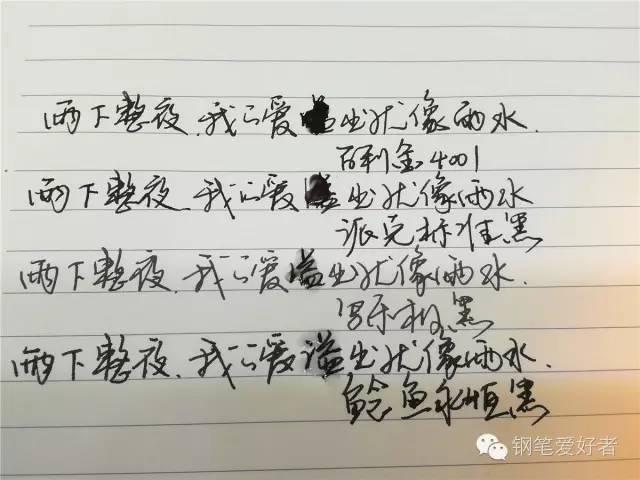 雨下整夜,我的爱溢出就像雨水.
百利金4001
雨下整夜,我的爱溢出就像雨水
派克标准黑
雨下整夜,我的爱溢出就像雨水.
写乐极黑
雨下整夜,我的爱溢出就像雨水.
鲶鱼永恒黑
钢笔爱好者